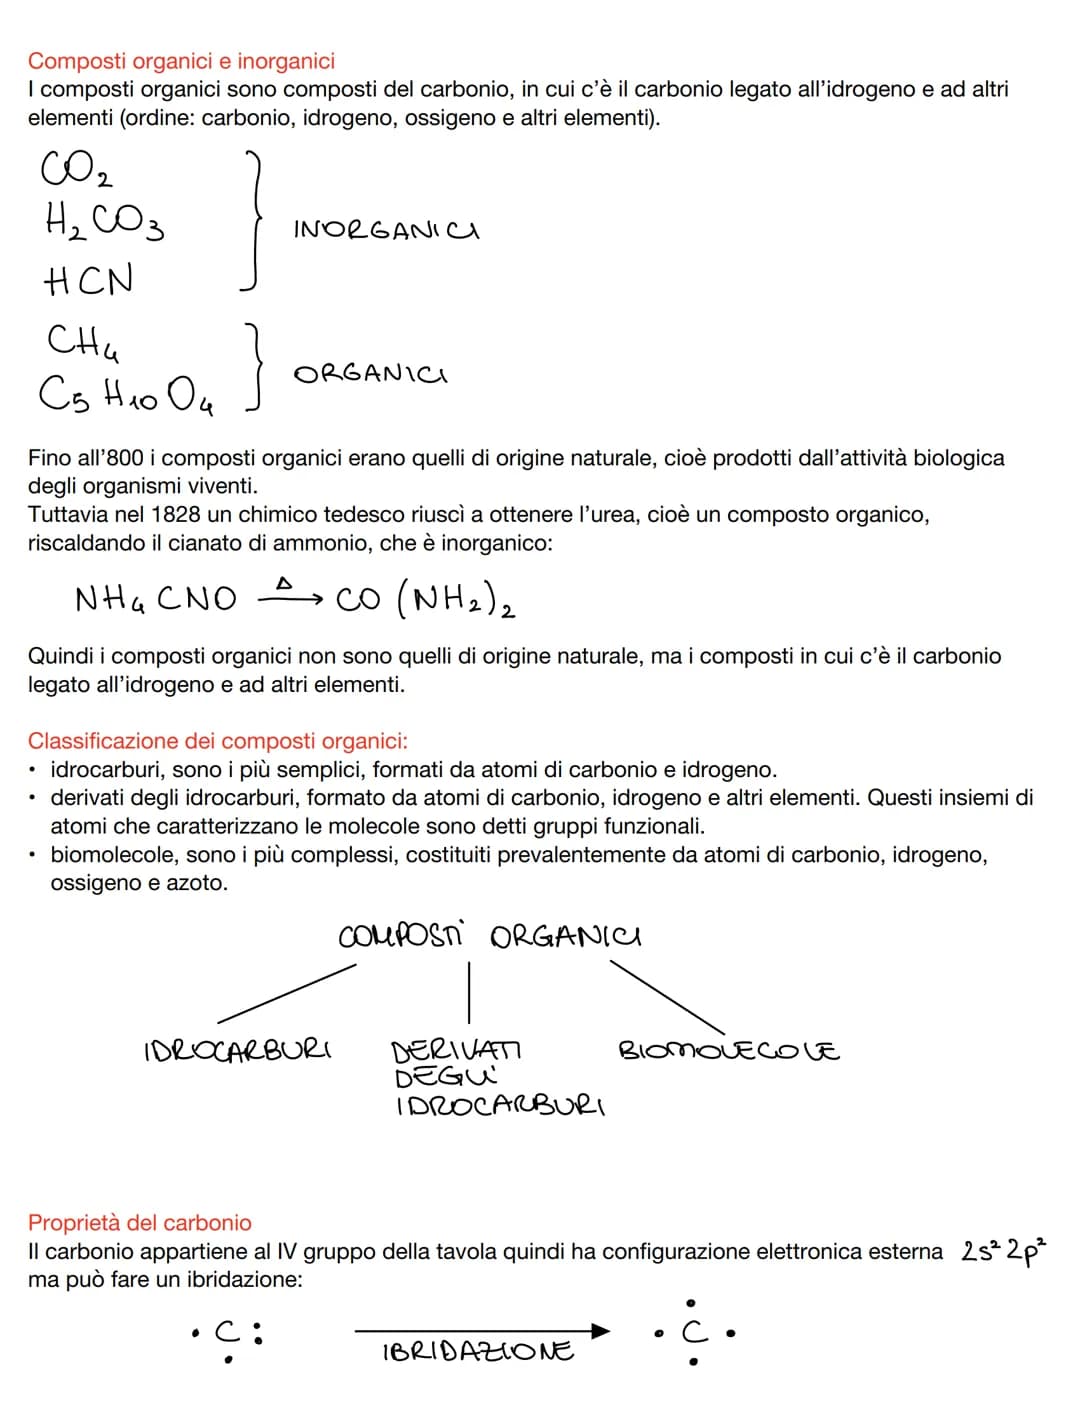 Composti organici e inorganici
I composti organici sono composti del carbonio, in cui c'è il carbonio legato all'idrogeno e ad altri
elementi (ordine: carbonio, idrogeno, ossigeno e altri elementi).
CO₂
H₂CO₃
INORGANICI
HCN
CH₄
ORGANICI
C₅H₁₀O₄
Fino all'800 i composti organici erano quelli di origine naturale, cioè prodotti dall'attività biologica
degli organismi viventi.
Tuttavia nel 1828 un chimico tedesco riuscì a ottenere l'urea, cioè un composto organico,
riscaldando il cianato di ammonio, che è inorganico:
NH₄CNO Δ→ CO(NH₂)₂
Quindi i composti organici non sono quelli di origine naturale, ma i composti in cui c'è il carbonio
legato all'idrogeno e ad altri elementi.
Classificazione dei composti organici:
• idrocarburi, sono i più semplici, formati da atomi di carbonio e idrogeno.
• derivati degli idrocarburi, formato da atomi di carbonio, idrogeno e altri elementi. Questi insiemi di
atomi che caratterizzano le molecole sono detti gruppi funzionali.
• biomolecole, sono i più complessi, costituiti prevalentemente da atomi di carbonio, idrogeno,
ossigeno e azoto.
COMPOSTI ORGANICI
IDROCARBURI
DERIVATI
DEGLI
IDROCARBURI
BIOMOLECOLE
Proprietà del carbonio
Il carbonio appartiene al IV gruppo della tavola quindi ha configurazione elettronica esterna 2s² 2p²
ma può fare un ibridazione:
C
IBRIDAZIONE
C